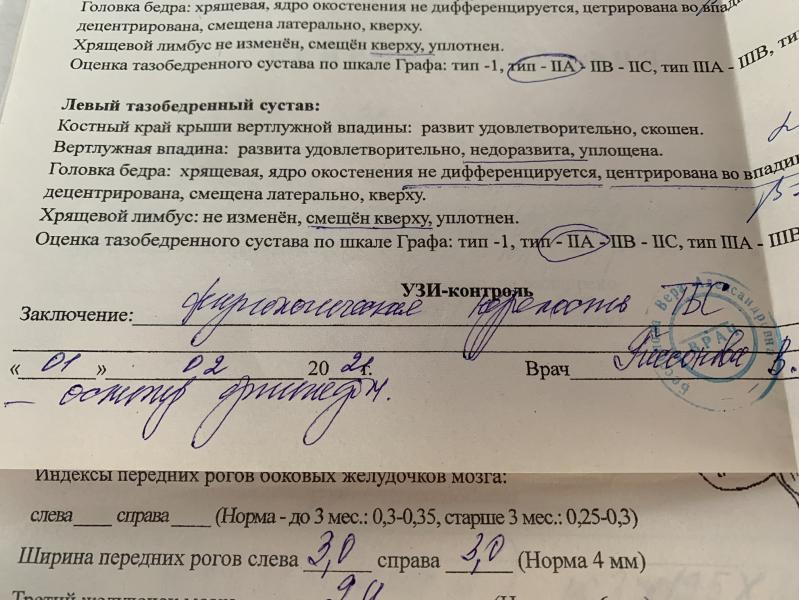 Головка бедра: хрящевая, ядро окостенения не дифференцируется, цетрирована во впадине,
децентрирована, смещена латерально, кверху.
Хрящевой лимбус не изменён, смещён кверху, уплотнен.
Оценка тазобедренного сустава по шкале Графа: тип -1, тип - IIA - IIB - IIC, тип IIIA - IIIB, ти
Левый тазобедренный сустав:
Костный край крыши вертлужной впадины: развит удовлетворительно, скошен.
Вертлужная впадина: развита удовлетворительно, недоразвита, уплощена.
Головка бедра: хрящевая, ядро окостенения не дифференцируется, центрирована во впадин
децентрирована, смещена латерально, кверху.
Хрящевой лимбус: не изменён, смещён кверху, уплотнен.
Оценка тазобедренного сустава по шкале Графа: тип -1, тип - IIA - IIB - IIC, тип IIIA - IIIB
УЗИ-контроль
Заключение: физиологическая незрелость ТБС
« 01 » 02 20 21г. Врач В.
- осмотр ортопедом.
Индексы передних рогов боковых желудочков мозга:
слева справа (Норма - до 3 мес.: 0,3-0,35, старше 3 мес.: 0,25-0,3)
Ширина передних рогов слева 3,0 справа 3,0 (Норма 4 мм)